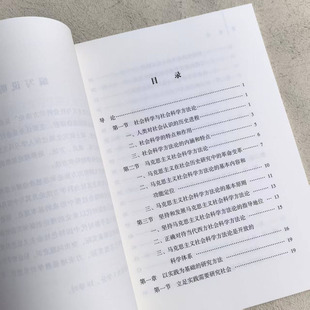 目 录
导 论 1
第一节 社会科学与社会科学方法论 1
一、人类对社会认识的历史进程
二、社会科学的特点和作用
三、社会科学方法论的内涵和特点
第二节 马克思主义社会科学方法论 7
一、马克思主义在社会历史研究中的革命变革
二、马克思主义社会科学方法论的基本内容和
功能定位
三、马克思主义社会科学方法论的基本原则
第三节 坚持和发展马克思主义社会科学方法论 13
一、坚持马克思主义社会科学方法论的指导地位
二、正确对待当代西方社会科学方法论
三、马克思主义社会科学方法论是开放的
科学体系 16
第一章 以实践为基础的研究方法 19
第一节 立足实践需要研究社会 19